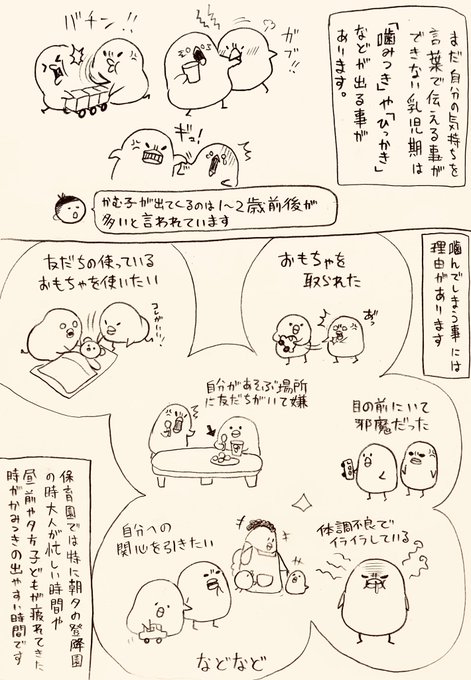 まだ自分の気持ちを
言葉で伝える事が
できない乳児期は
「噛みつき」や「ひっかき」
などが出る事が
あります。
ガブ!!
バチン!!
ギュ!
かむ子が出てくるのは1〜2歳前後が
多いと言われています
噛んでしまう事には
理由があります
おもちゃを
取られた
あっ
友だちの使っている
おもちゃを使いたい
コレがいい!!
目の前にいて
邪魔だった
自分があそぶ場所
に友だちがいて嫌
体調不良で
イライラしている
自分への
関心を引きたい
などなど
保育園では特に朝夕の登降園
の時大人が忙しい時間や
昼前や夕方子どもが疲れてきた
時がかみつきの出やすい時間です